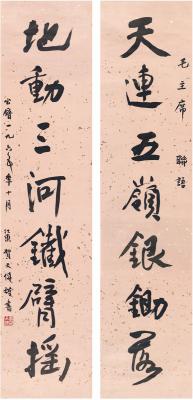 天連五嶺銀鋤落
毛主席聯語
地動三河鐵臂搖
公曆一九六
年
十月
江東賀天健試書